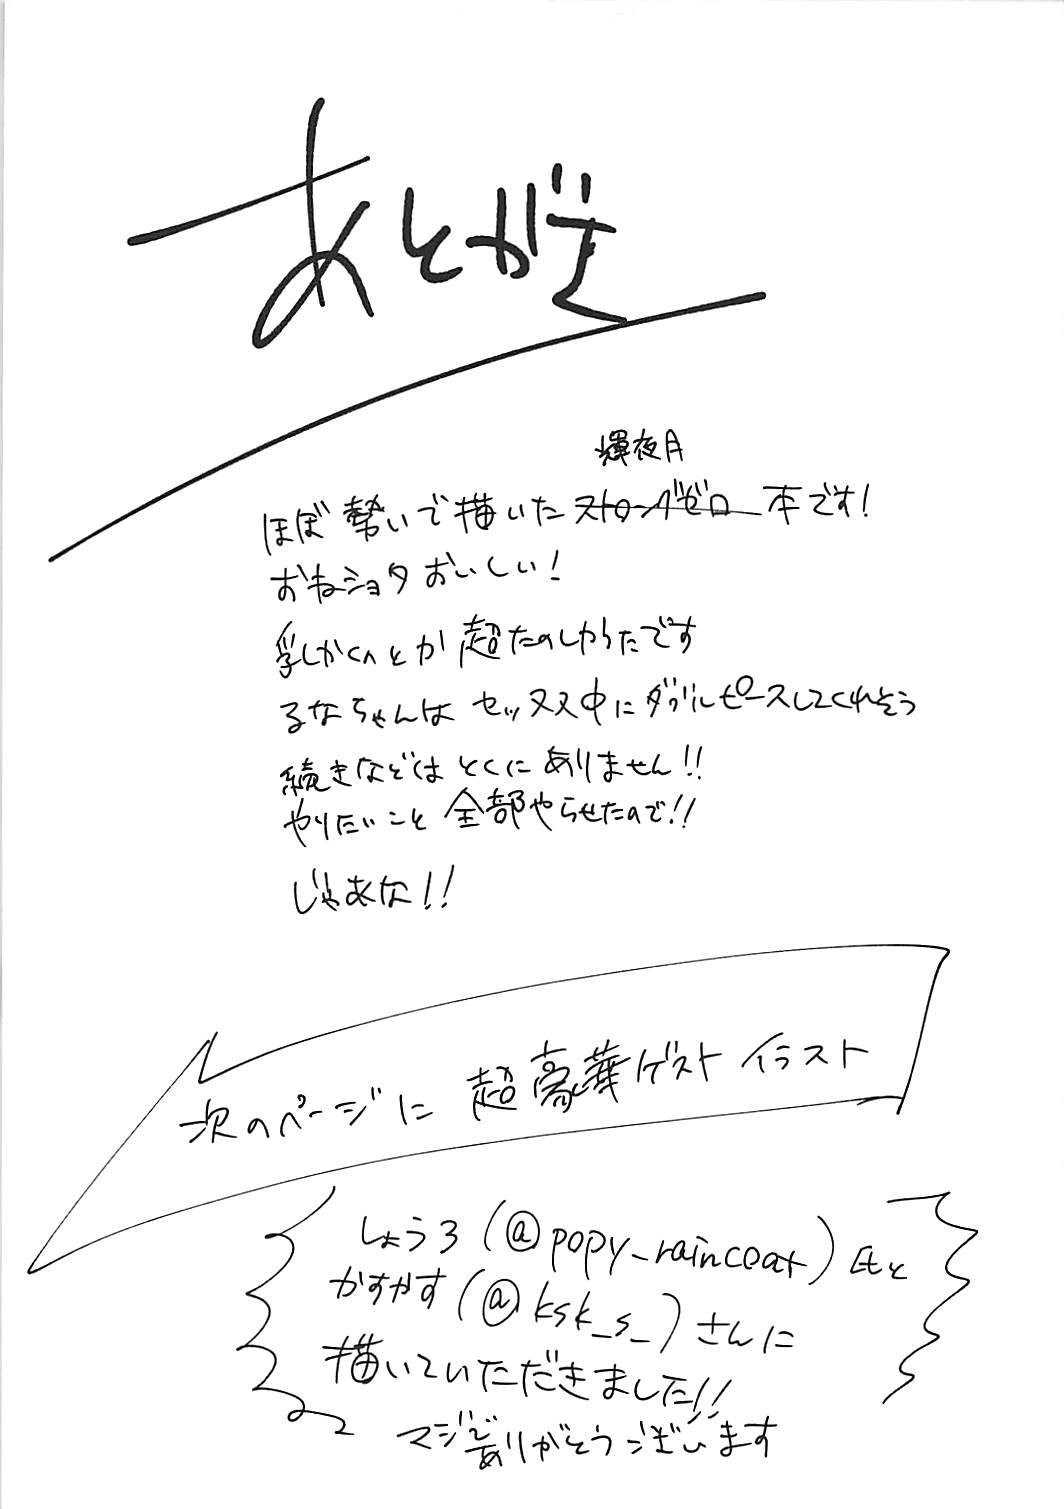 あとがき
輝夜月
ほぼ勢いで描いたストロングゼロ本です!
おねショタおいしい!
乳しかくハとか超たのしかったです
るなちゃんはセッヌヌ中にダブルピースしてくれそう
続きなどはとくにありません!!
やりたいこと全部やらせたので!!
じゃあな!!
次のページに超豪華ゲストイラスト
しょうろ(@popy_raincoat)氏と
かすかす(@ksk_s_)さんに
描いていただきました!!
マジでありがとうございます